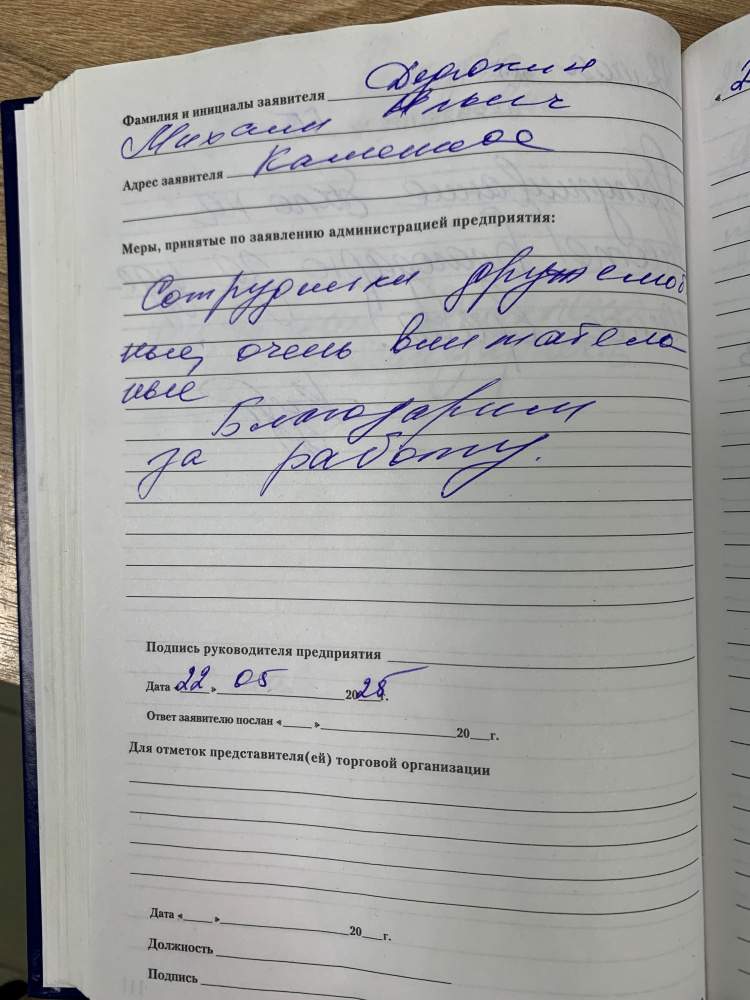 Фамилия и инициалы заявителя Дерюжин
Михаил Ильич
Адрес заявителя Каменное
Меры, принятые по заявлению администрацией предприятия:
Сотрудники дружелюб
ные, очень вниматель
ные
Благодарим
за работу.
Подпись руководителя предприятия
Дата «22» 05 2025 г.
Ответ заявителю послан «____» 20___г.
Для отметок представителя(ей) торговой организации
Дата «____» 20___г.
Должность
Подпись